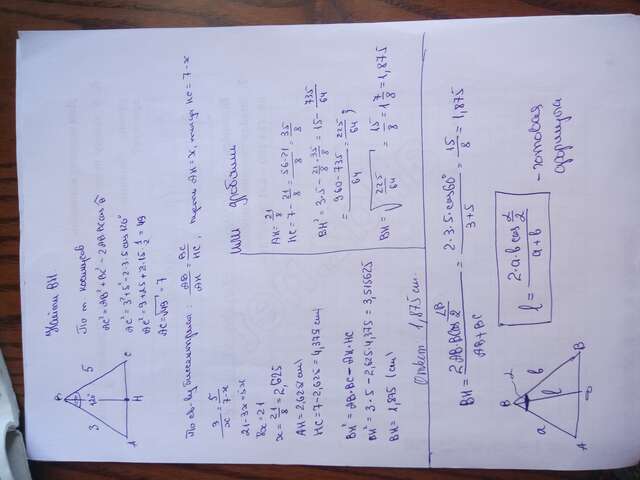 Найти BH
B
3
5
120°
A
H
C
По т. косинусов
AC² = AB² + BC² - 2AB·BC cos B
AC² = 3² + 5² - 2·3·5 cos 120°
AC² = 9 + 25 + 2·15·1/2 = 49
AC = √49 = 7
По св-ву биссектрисы: AB/AH = BC/HC, пусть AH = x, тогда HC = 7 - x
3/x = 5/7-x
21 - 3x = 5x
8x = 21
x = 21/8 = 2,625
AH = 2,625 (см)
HC = 7 - 2,625 = 4,375 (см)
BH² = AB·BC - AH·HC
BH² = 3·5 - 2,625·4,375 = 3,515625
BH = 1,875 (см)
или дробями
AH = 21/8
HC = 7 - 21/8 = 56-21/8 = 35/8
BH² = 3·5 - 21/8·35/8 = 15 - 735/64
= 960-735/64 = 225/64 ;
BH = √225/64 = 15/8 = 1 7/8 = 1,875
Ответ: 1,875 см.
BH = 2AB·BC cos ∠B/2 / AB + BC = 2·3·5·cos60°/3+5 = 15/8 = 1,875
B
α
a
b
l
A
B
l = 2·a·b cos α/2 / a + b
- готовая
формула